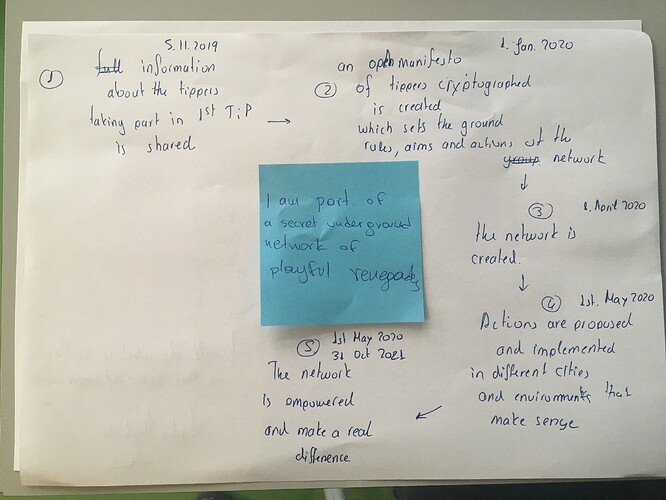 5.11.2019
① full information
about the tippers
taking part in 1st TiP
is shared
→
1. Jan. 2020
an open manifesto
② of tippers cryptographed
is created
which sets the ground
rules, aims and actions of the
group network
↓
1. April 2020
③
the network is
created.
↓
④ 1st. May 2020
Actions are proposed
and implemented
in different cities
and environments that
make sense
←
⑤ 1st May 2020
31 Oct 2021
The network
is empowered
and make a real
difference
I am part of
a secret underground
network of
playful renegades